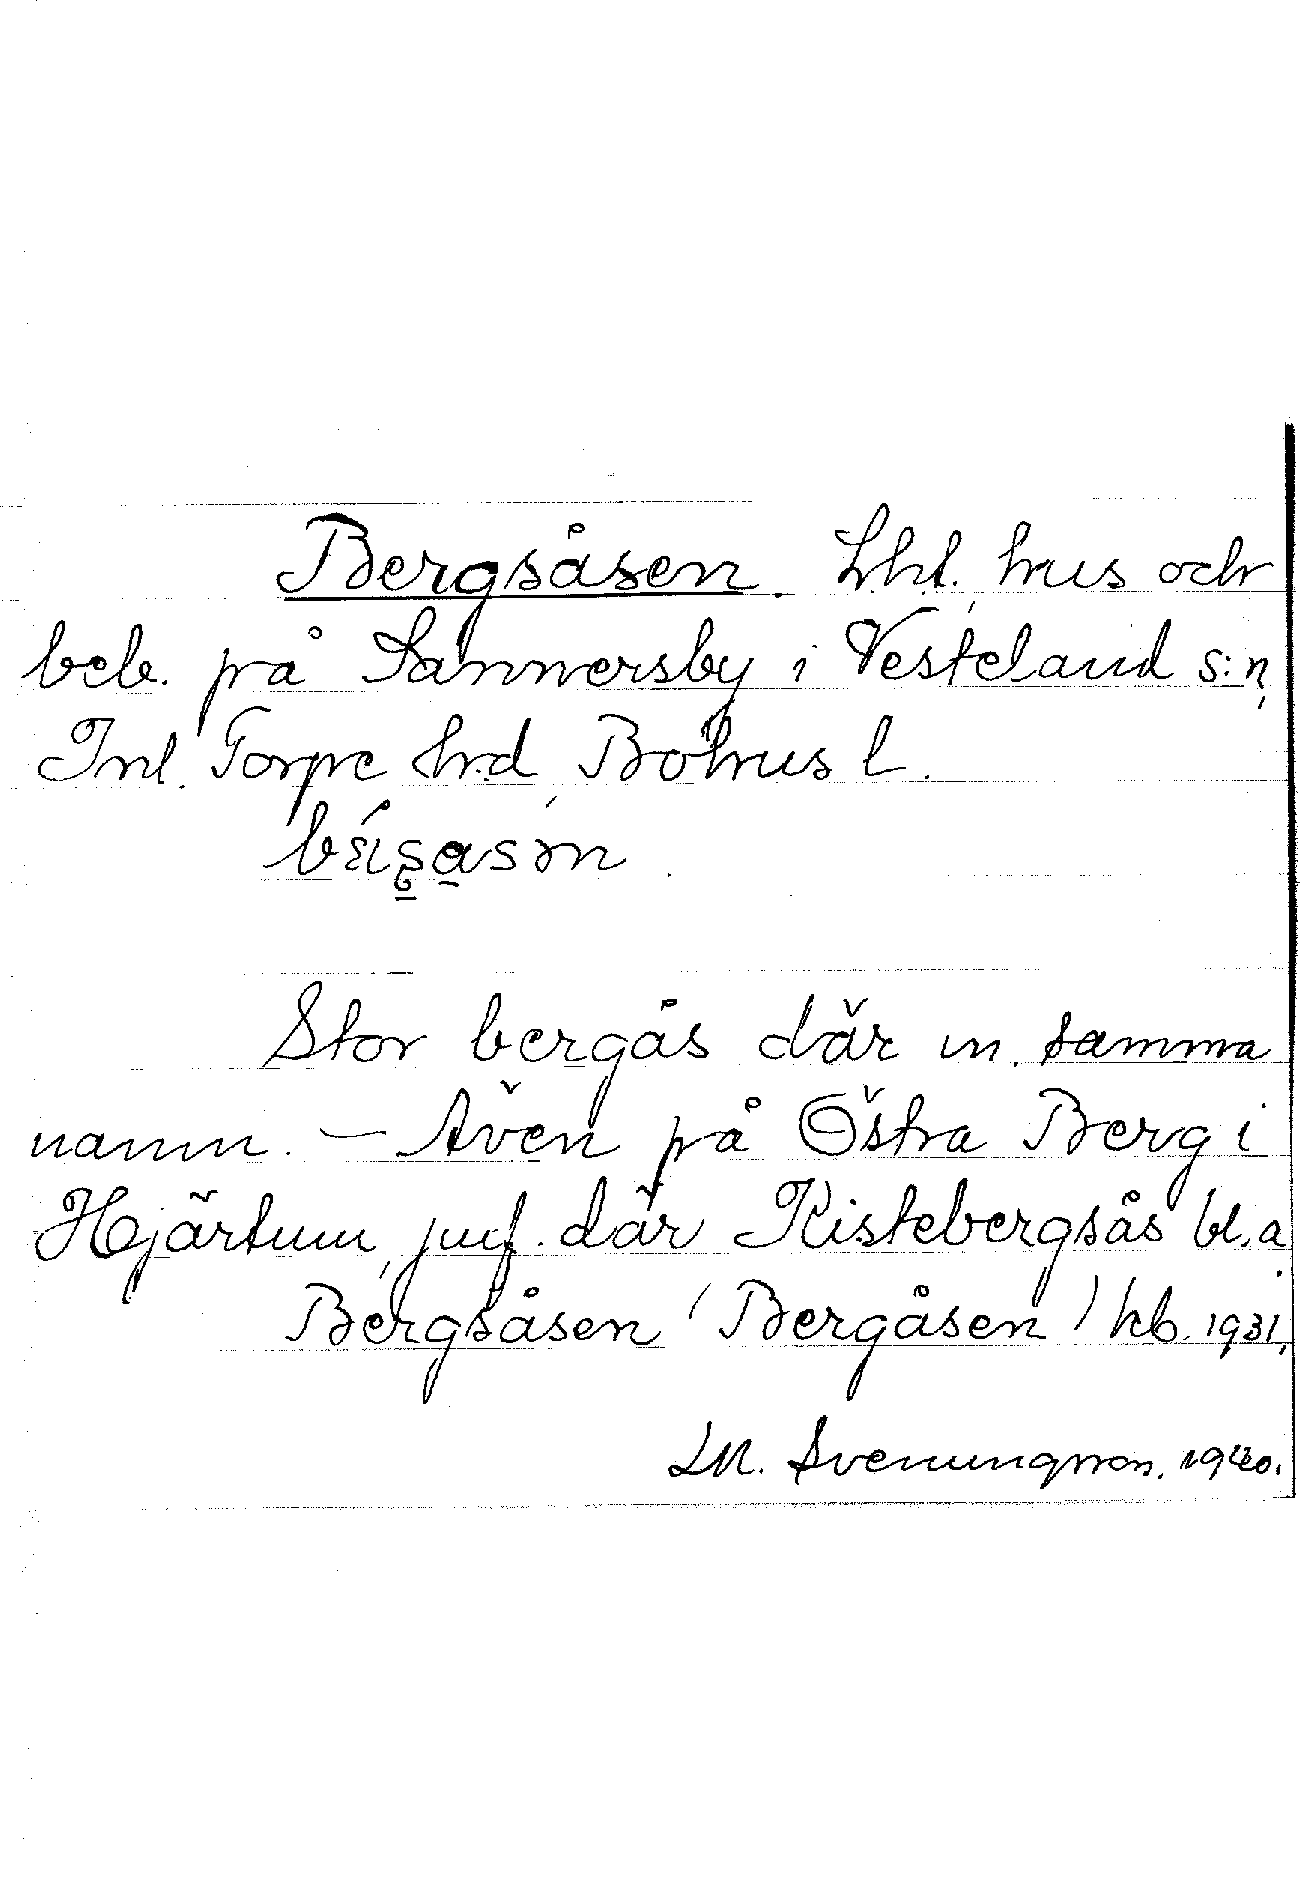 Bergsåsen. Lht. hus och
beb. på Sannersby i Vesteland s:n,
Inl. Torpe hrd, Bohus l.
Stor bergås där m. samma
namn. — Även på Östra Berg i
Hjärtum, jmf. där Kistebergsås bl.a.
Bergsåsen (Bergåsen) kb. 1931,
LM. Svenungsson. 1940.